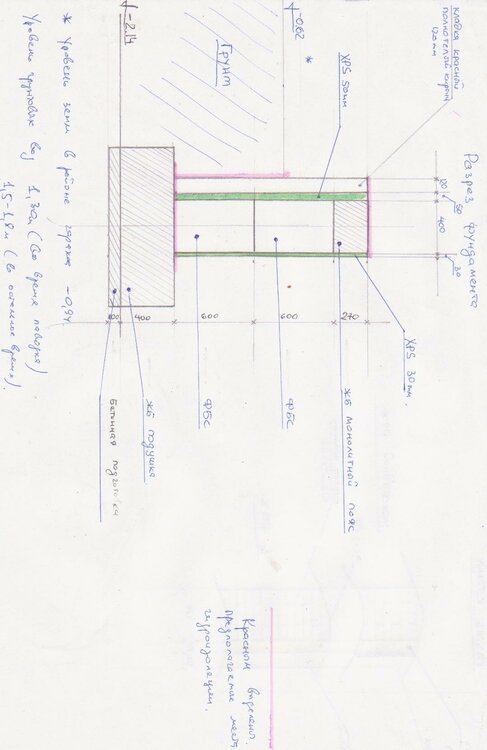 Разрез фундамента
кладка красной
полнотелой кирпич
120мм
120
50
400
30
XPS 50мм
XPS 30мм.
-0,62
*
Грунт
-2.14
270
600
600
400
100
ЖБ монолитный пояс
ФБС
ФБС
ЖБ подушка
Бетонная подготовка
* Уровень земли в районе гаража -0,94.
Уровень грунтовых вод 1,3м (во время паводка)
1,5-1,8м (в остальное время).
Красным выделены.
предполагаемые места
гидроизоляции.